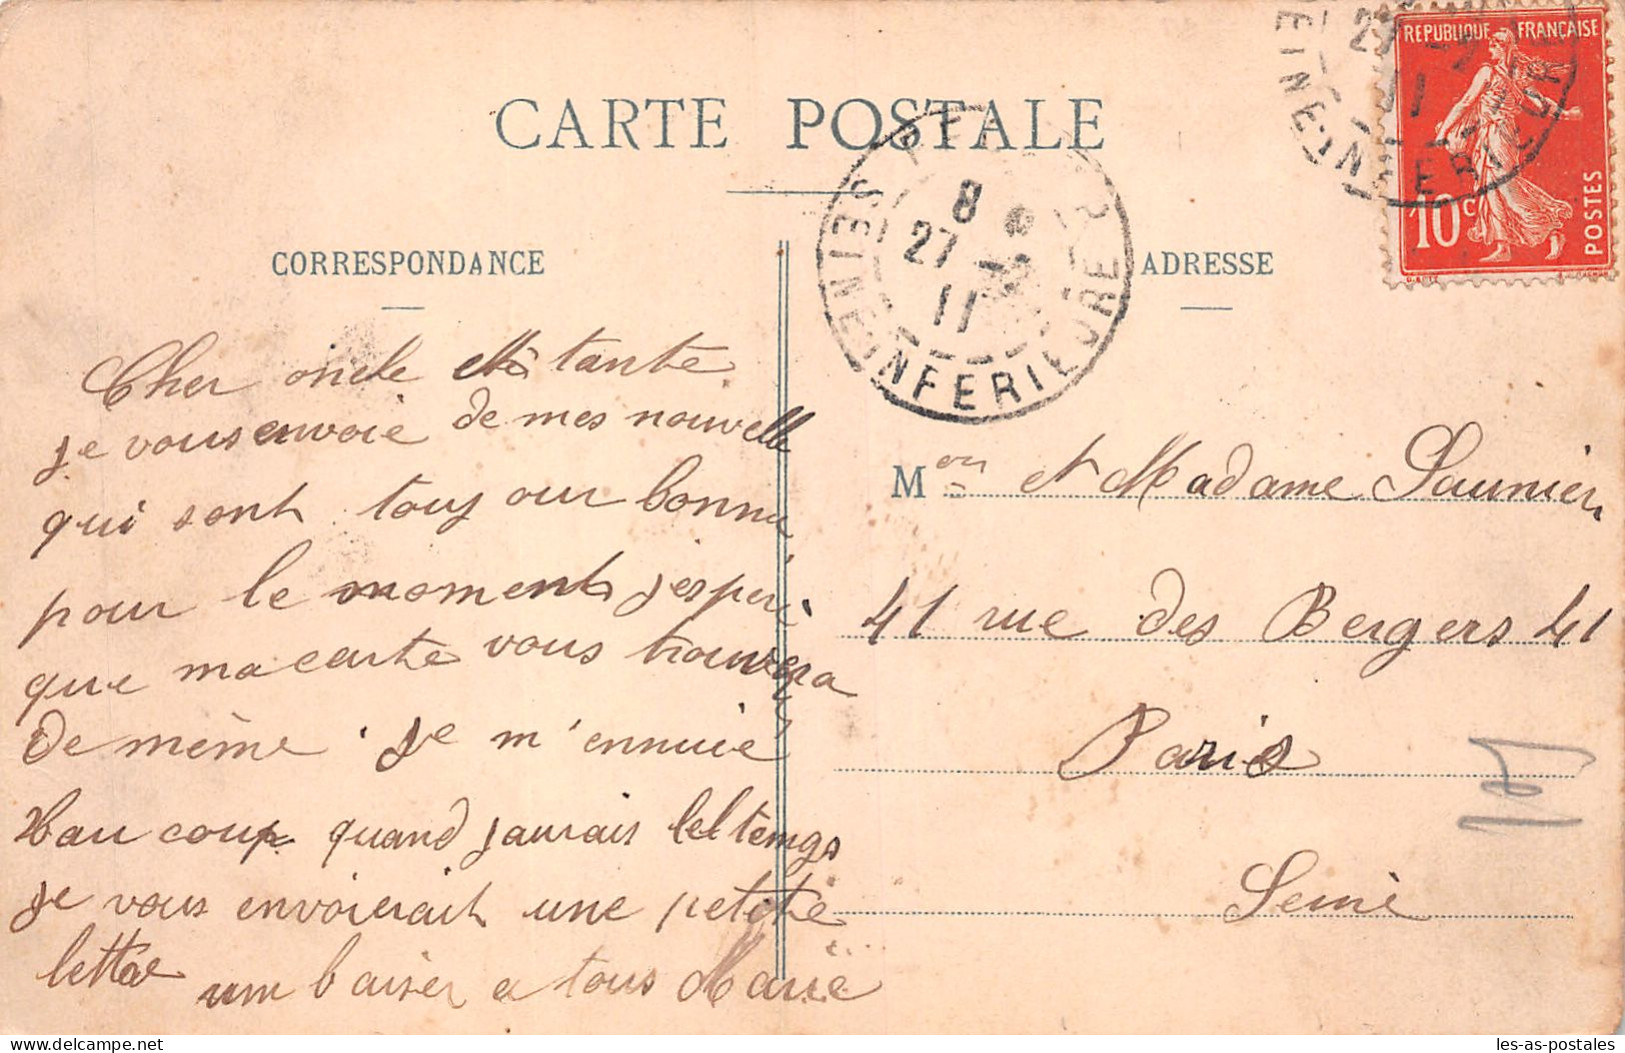 CARTE POSTALE
CORRESPONDANCE
Cher oncle et tante
je vous envoie de mes nouvelle
qui sont toujour bonne
pour le moment j'espère
que ma carte vous trouvera
de même je m'ennuie
baucoup quand jaurais lel temps
je vous envoierait une petite
lettre um baiser a tous Marie
8
27
11
SEINE INFERIEURE
REPUBLIQUE FRANÇAISE
10c
POSTES
27
11
SEINE INFERIEURE
ADRESSE
Mon et Madame Saunier
41 rue des Bergers 41
Paris
Seine
les-as-postales